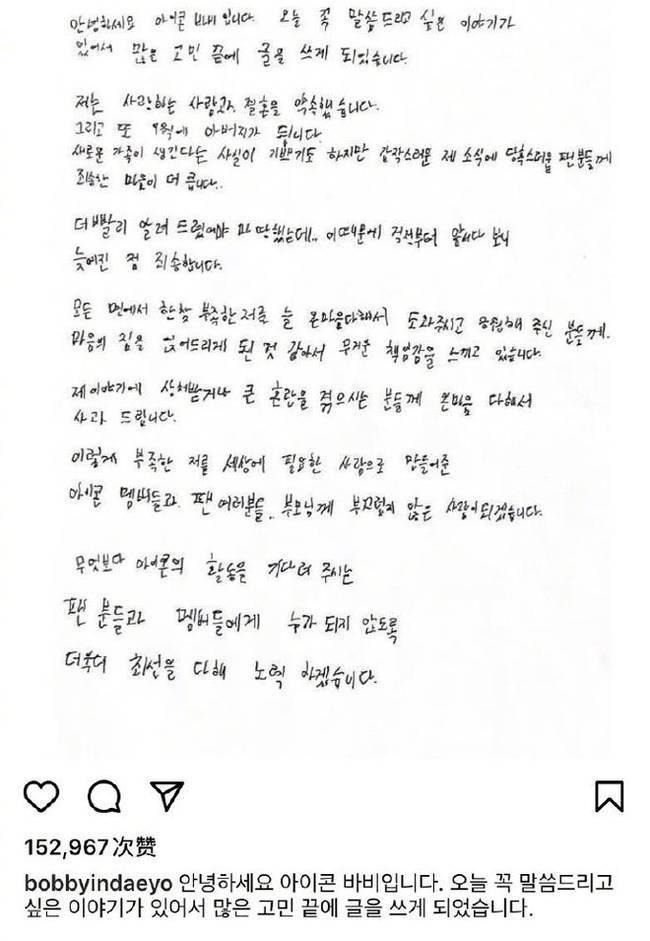 안녕하세요 아이콘 바비입니다. 오늘 꼭 말씀드리고 싶은 이야기가
있어서 많은 고민 끝에 글을 쓰게 되었습니다.
저는 사랑하는 사람과 결혼을 약속했습니다.
그리고 또 9월에 아버지가 됩니다.
새로운 가족이 생긴다는 사실이 기쁘기도 하지만 갑작스러운 제 소식에 당혹스러울 팬분들께
죄송한 마음이 더 큽니다..
더 빨리 알려 드렸어야 마땅했는데.. 이 때문에 걱정부터 앞서다 보니
늦어진 점 죄송합니다.
모든 면에서 한참 부족한 저를 늘 온마음다해서 도와주시고 응원해 주신 분들께.
마음의 짐을 얹어드리게 된 것 같아서 무거운 책임감을 느끼고 있습니다.
제 이야기에 상처받거나 큰 혼란을 겪으시는 분들께 온마음 다해서
사과 드립니다.
이렇게 부족한 저를 세상에 필요한 사람으로 만들어준
아이콘 멤버들과 팬 여러분들.. 부모님께 부끄럽지 않은 사람이되겠습니다.
무엇보다 아이콘의 활동을 기다려 주시는
팬 분들과 멤버들에게 누가 되지 않도록
더욱더 최선을 다해 노력 하겠습니다.
152,967次赞
bobbyindaeyo 안녕하세요 아이콘 바비입니다. 오늘 꼭 말씀드리고
싶은 이야기가 있어서 많은 고민 끝에 글을 쓰게 되었습니다.